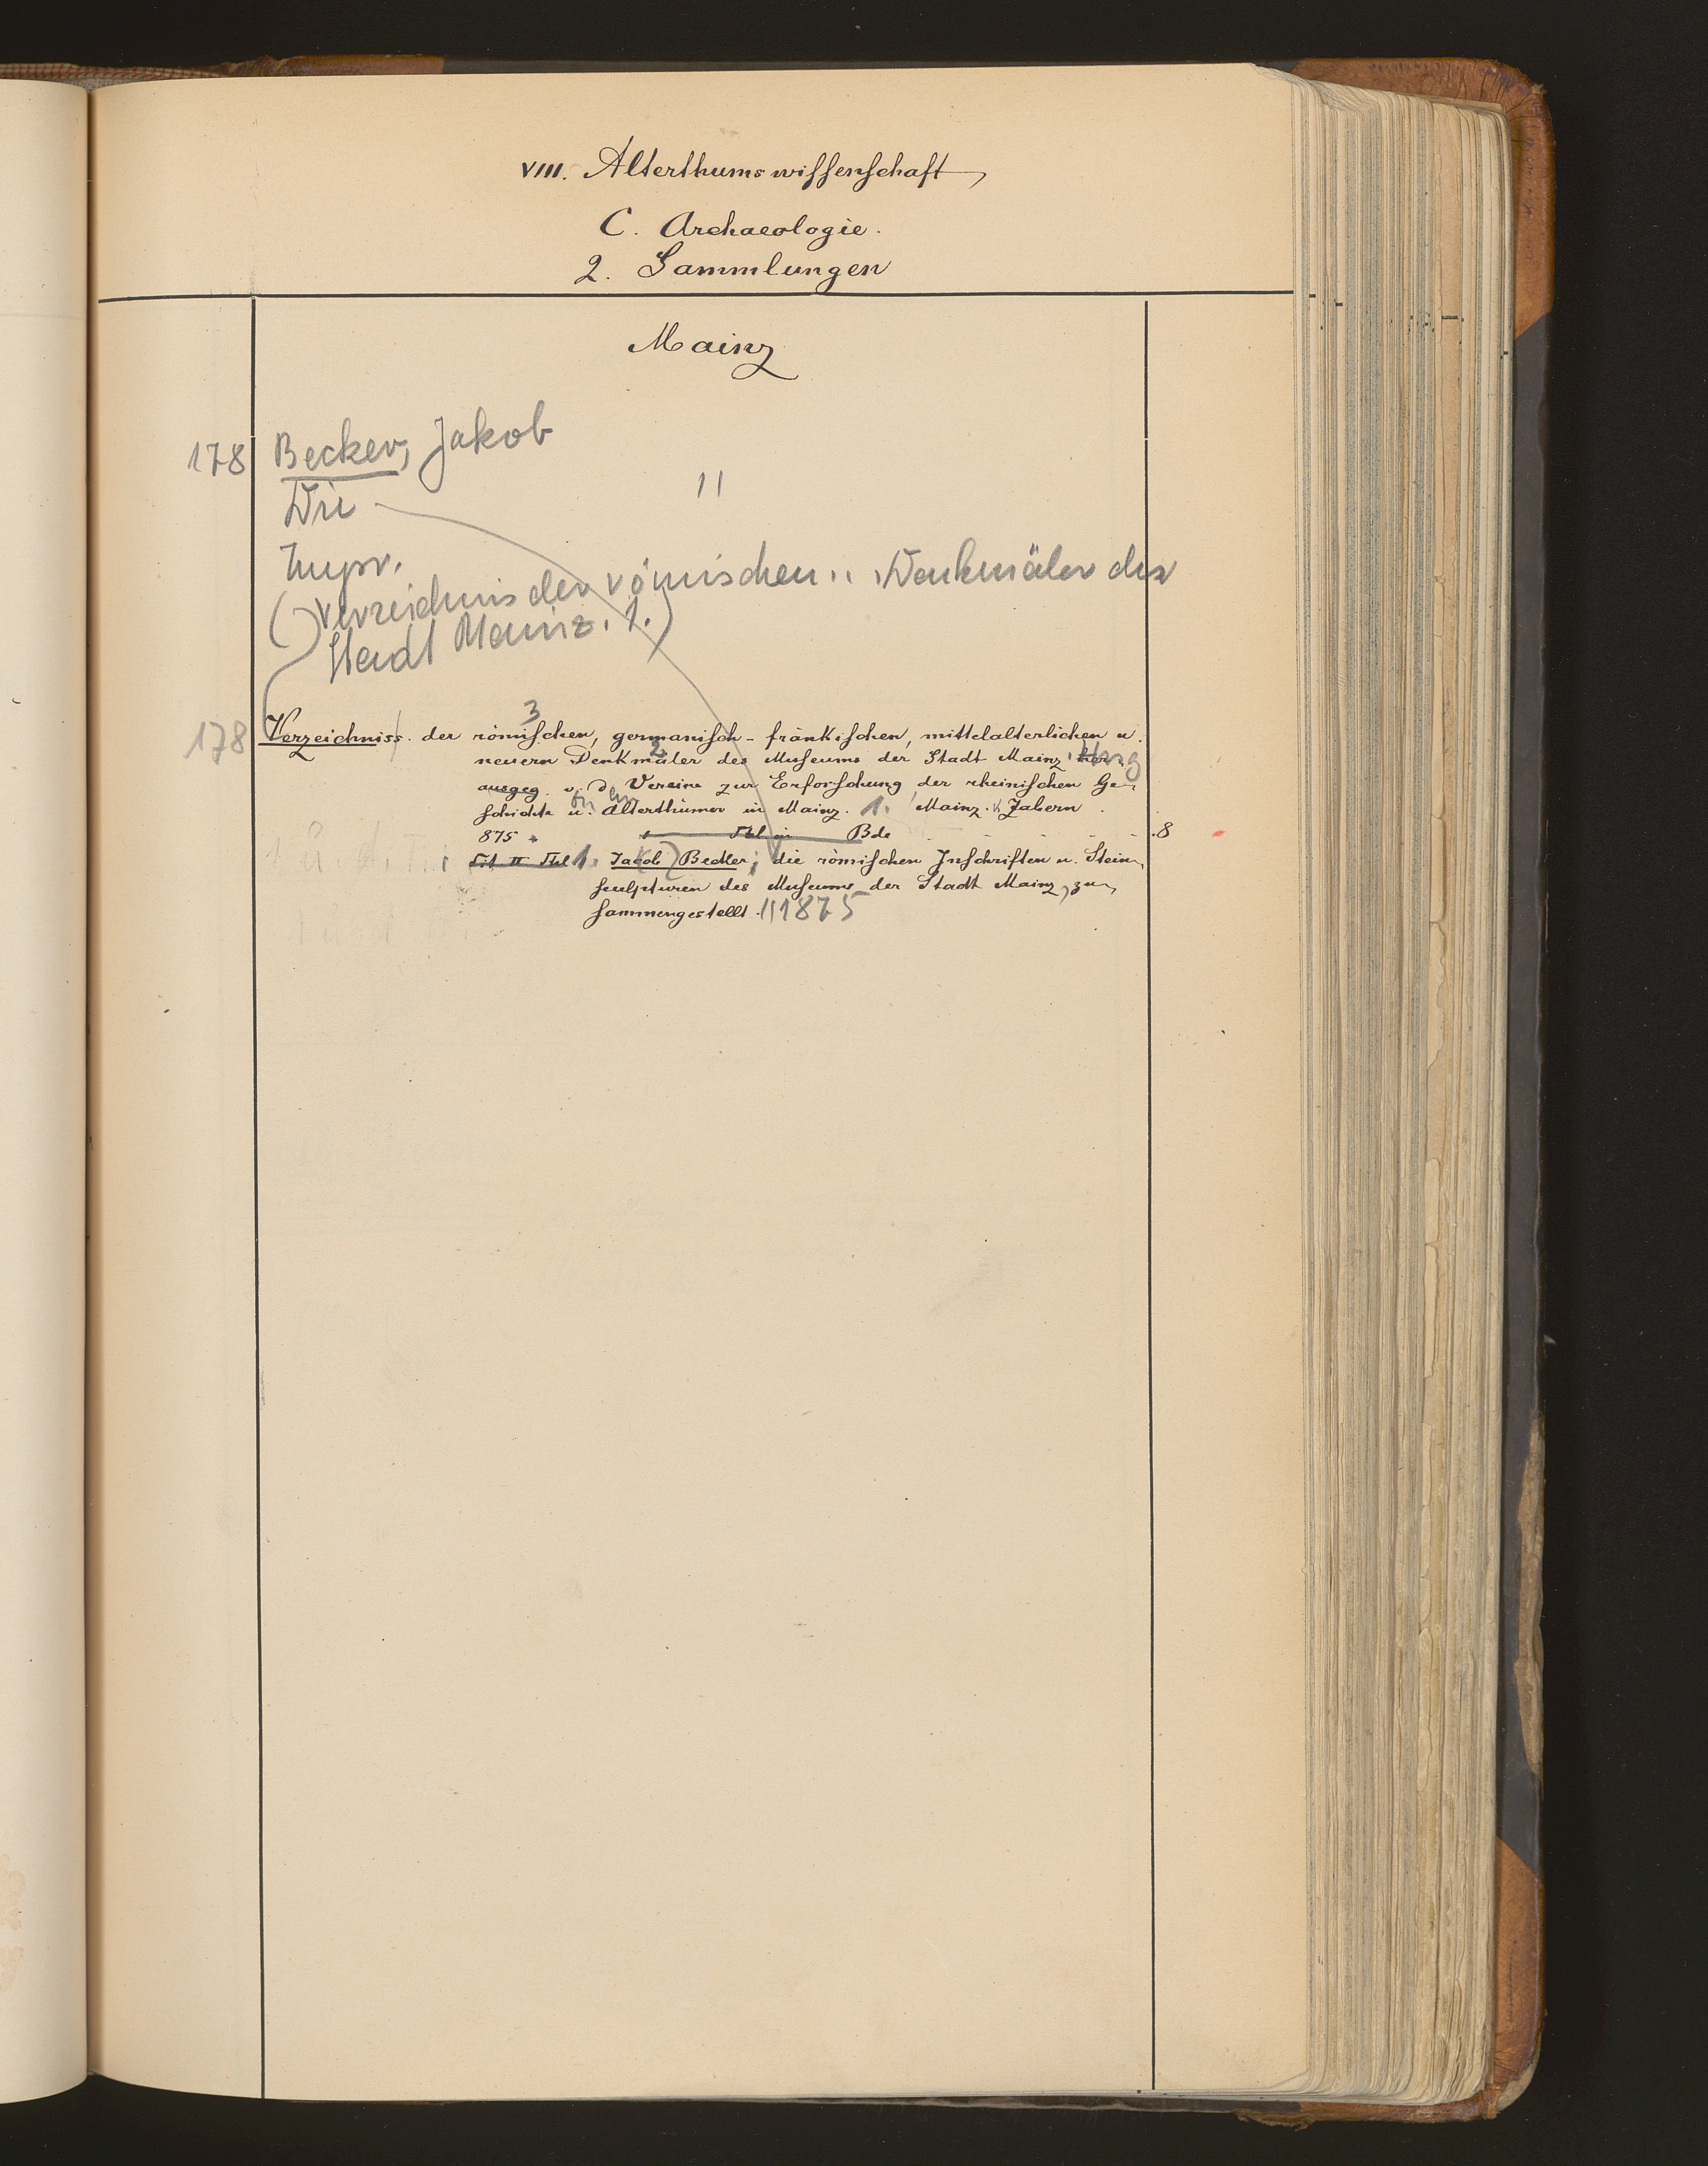 VIII. Alterthumswissenschaft
C. Archaeologie.
2. Sammlungen
Mainz
178 Becker, Jakob
Die 11
Impr.
(Verzeichnis der römischen .. Denkmäler der
Stadt Mainz. 1.)
3
178 Verzeichniss der römischen, germanisch-fränkischen, mittelalterlichen u.
2
neuern Denkmäler des Museums der Stadt Mainz. her- Hrsg
ausgeg. v. d. Vereine zur Erforschung der rheinischen Ge-
on em
schichte u. Alterthümer in Mainz. 1. Mainz. v. Zabern.
875 Thl in Bde 8
1. Jacob Becker; die römischen Inschriften u. Stein-
sculpturen des Museums der Stadt Mainz, zu-
sammengestellt. 1875